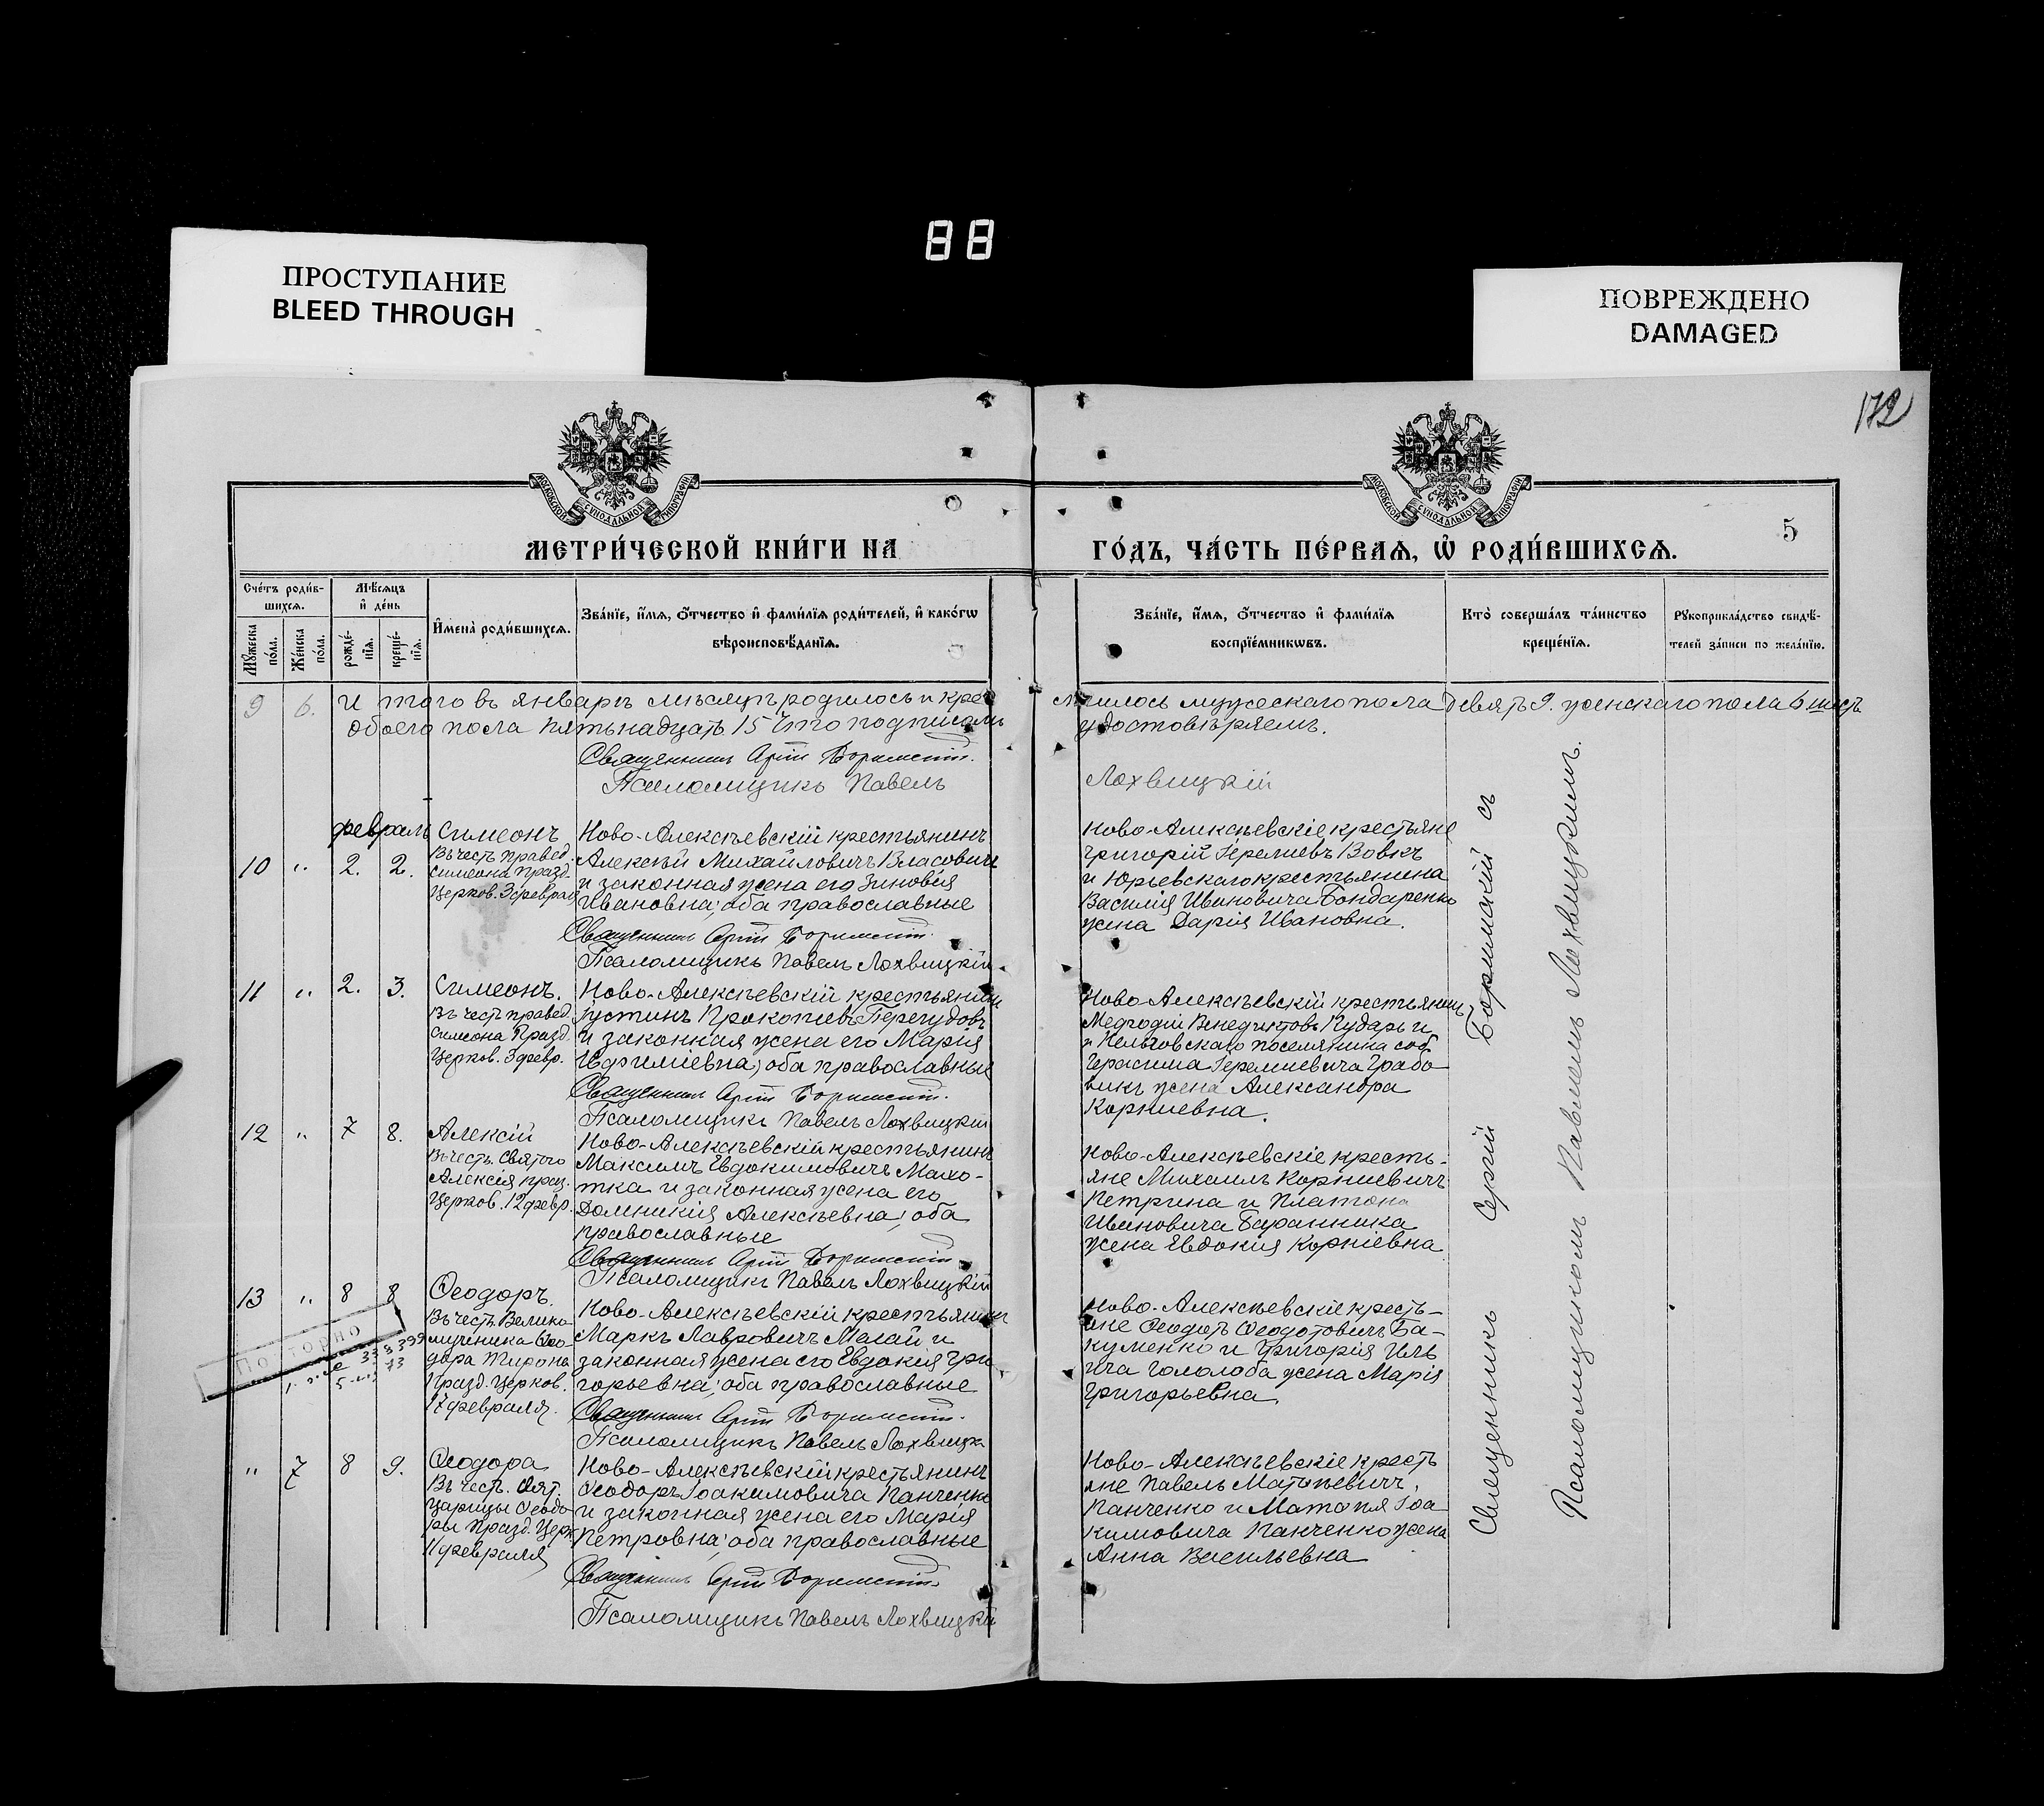 88
ПРОСТУПАНИЕ
BLEED THROUGH
ПОВРЕЖДЕНО
DAMAGED
172
МОСКОВСКОЙ СѴНОДАЛЬНОЙ ТИПОГРАФІИ
МОСКОВСКОЙ СѴНОДАЛЬНОЙ ТИПОГРАФІИ
5
МЕТРИ́ЧЕСКОЙ КНИ́ГИ НА
ГО́ДЪ, ЧА́СТЬ ПЕ́РВАЯ, Ѽ РОДИ́ВШИХСЯ.
Сче́тъ роди́в-
шихся.
Мꙋ́жеска по́ла.
Же́нска по́ла.
Мѣ́сяцъ
и҆ де́нь
рожде́-
нїя.
креще́-
нїя.
И҆мена̀ роди́вшихся.
Зва́нїе, и҆́мя, ѻ҆́тчество и҆ фами́лїя роди́телей, и҆ како́гѡ
вѣроисповѣ́данїя.
Зва́нїе, и҆́мя, ѻ҆́тчество и҆ фами́лїя
воспрїе́мникѡвъ.
Кто̀ соверша́лъ та́инство
креще́нїя.
Рꙋкоприкла́дство свидѣ́-
телей за́писи по жела́нїю.
9 6. Итого въ январѣ мѣсяцѣ родилось и кре
стилось мужескаго пола девять 9. женскаго пола 6 шесть
обоего пола пятьнадцать 15 что подписомъ
удостовѣряемъ.
Священникъ Сергій Боримскій.
Псаломщикъ Павелъ
Лохвицкій
февраль
10 " 2. 2.
Симеонъ
Въ честь правед.
Симеона Празд.
Церков. 3 февраля
Ново-Алексѣевскій крестьянинъ
Алексѣй Михайловичъ Власовичъ
и законная жена его Зиновія
Ивановна; оба православные
Священникъ Сергій Боримскій.
Псаломщикъ Павелъ Лохвицкій
Ново-Алексѣевскіе крестьяне
Григорій Іереміевъ Вовкъ
и Юрьевскаго крестьянина
Василія Ивановича Бондаренко
жена Дарія Ивановна.
11 " 2. 3.
Симеонъ.
Въ честь правед.
Симеона Празд.
Церков. 3 февр.
Ново-Алексѣевскій крестьянинъ
Іустинъ Прокопіевъ Перегудовъ
и законная жена его Марія
Евфиміевна; оба православные
Священникъ Сергій Боримскій.
Псаломщикъ Павелъ Лохвицкій
Ново-Алексѣевскій крестьянинъ
Меѳодій Венедиктовъ Кударь и
поселянина соб.
Герасима Іереміевича Грабо
викъ жена Александра
Корниевна.
12 " 7 8.
Алексій
Въ честь Святого
Алексія праз.
Церков. 12 февр.
Ново-Алексѣевскій крестьянинъ
Максимъ Евдокимовичъ Махо-
тка и законная жена его
Домникія Алексѣевна; оба
православные
Священникъ Сергій Боримскій.
Псаломщикъ Павелъ Лохвицкій
Ново-Алексѣевскіе кресть-
яне Михаилъ Корниевичъ
Петрина и Платона
Ивановича Баранника
жена Евдокія Корніевна
13 " 8 8
Ѳеодоръ.
Въ честь Велико-
мученика Ѳео-
дора Тирона
Празд. Церков.
17 февраля.
Ново-Алексѣевскій крестьянинъ
Маркъ Лавровичъ Малай и
законная жена его Евдокія Гри
горьевна; оба православные
Священникъ Сергій Боримскій.
Псаломщикъ Павелъ Лохвицк
Ново-Алексѣевскіе кресть-
яне Ѳеодотъ Ѳеодотовичъ Ба-
куменко и Григорія Иль
ича Гололоба жена Марія
Григорьевна
Повторно
" 7 8 9.
Ѳеодора
Въ честь. Свят.
Царицы Ѳеодо-
ры Празд. Церк
11 февраля
Ново-Алексѣевскій крестьянинъ
Ѳеодоръ Іоакимовича Панченко
и законная жена его Марія
Петровна; оба православные
Священникъ Сергій Боримскій.
Псаломщикъ Павелъ Лохвицкій
Ново-Алексѣевскіе кресть
яне Павелъ Матѳѣевичъ
Панченко и Матѳія Іоа
кимовича Панченко жена
Анна Васильевна
Священникъ Сергій Боримскій съ
Псаломщикомъ Павлемъ Лохвицкимъ.